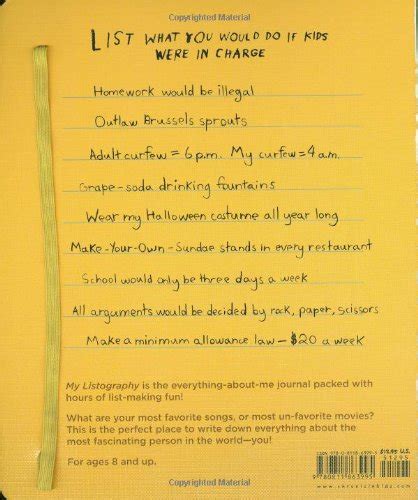 Copyrighted Material
LIST WHAT YOU WOULD DO IF KIDS
WERE IN CHARGE
Homework would be illegal
Outlaw Brussels sprouts
Adult curfew = 6 p.m. My curfew = 4 a.m.
Grape-soda drinking fountains
Wear my Halloween costume all year long
Make-Your-Own-Sundae stands in every restaurant
School would only be three days a week
All arguments would be decided by rock, paper, scissors
Make a minimum allowance law - $20 a week
My Listography is the everything-about-me journal packed with
hours of list-making fun!
What are your most favorite songs, or most un-favorite movies?
This is the perfect place to write down everything about the
most fascinating person in the world—you!
For ages 8 and up.
51295
9 780811 863995
www.chroniclekids.com
Copyrighted Material